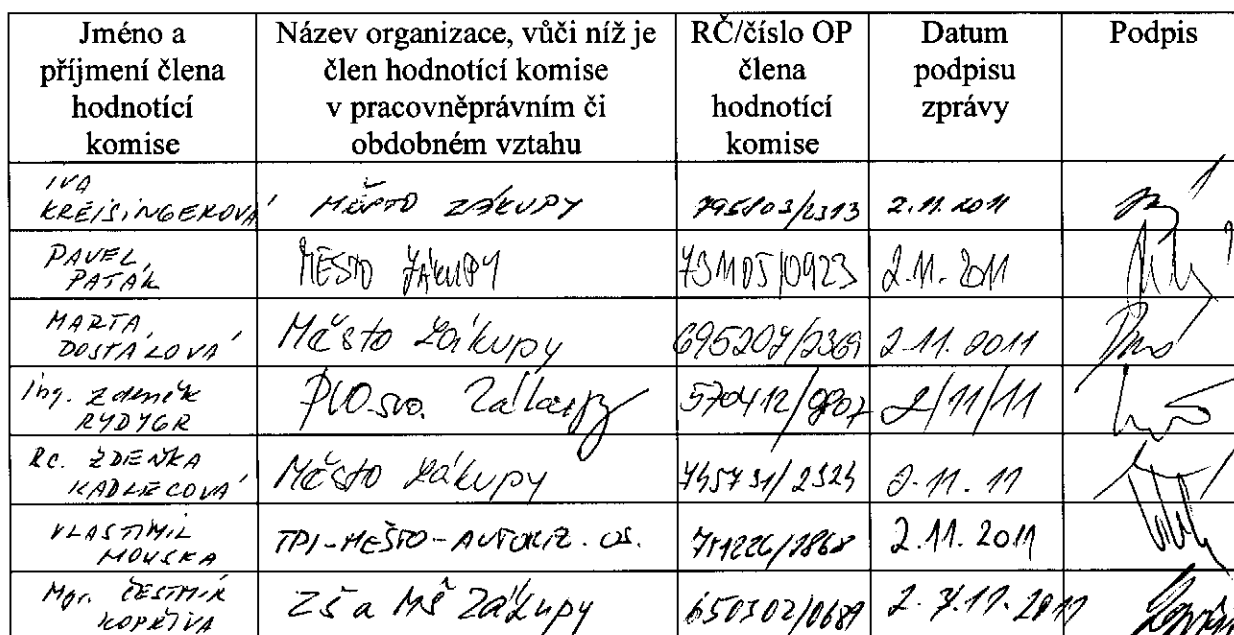 Jméno a příjmení člena hodnotící komise
Název organizace, vůči níž je člen hodnotící komise v pracovněprávním či obdobném vztahu
RČ/číslo OP člena hodnotící komise
Datum podpisu zprávy
Podpis
IVA KREISINGEROVÁ MĚSTO ZÁKUPY 2.11.2011
PAVEL PATÁK MĚSTO ZÁKUPY 731105/0923 2.11.2011
MARTA DOSTÁLOVÁ Město Zákupy 695207/2369 2.11.2011
Ing. Zdeněk RYDYGR Zákupy 2/11/11
Bc. ZDEŇKA KADLECOVÁ Město Zákupy 745731/2524 2.11.11
VLASTIMIL MOUSKA TDI-MĚSTO-AUTORIZ. OS. 2.11.2011
Mgr. ČESTMÍR KOPŘIVA ZŠ a MŠ Zákupy 650302/0689